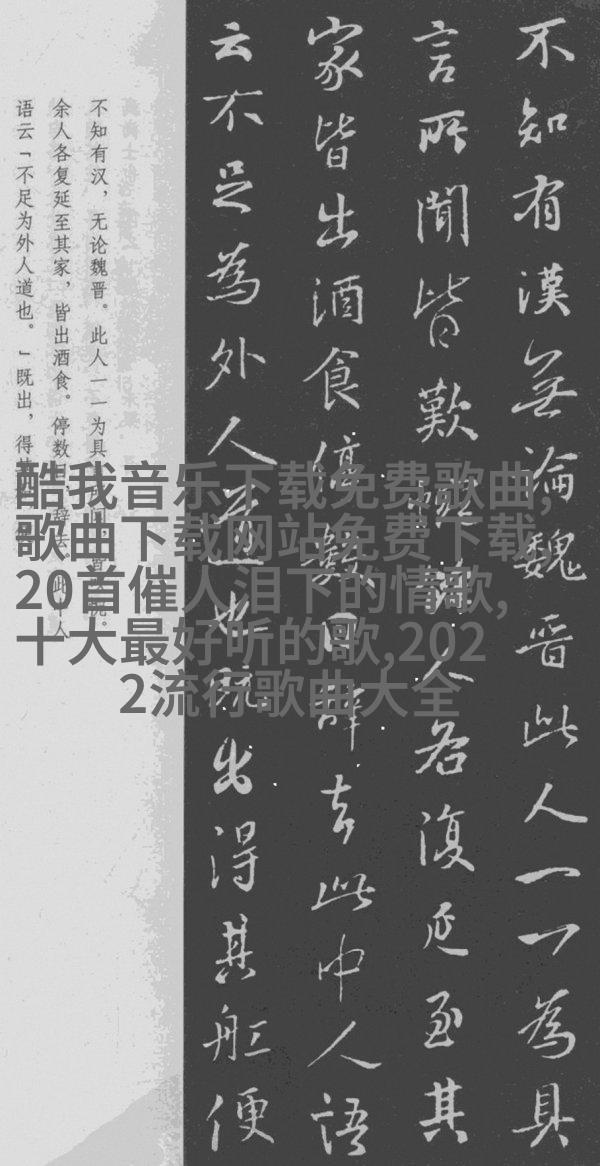 不知有漢無論魏晋此人一一為具
言所聞皆歎人各復延至其
家皆出酒食停數日辭去此中人語
云不足為外人道也既出得其舡便
不知有汉，无论魏晋。此人一一为具言所闻，皆叹惋。
余人各复延至其家，皆出酒食。停数日，辞去。此中人
语云「不足为外人道也。」既出，得其
酷我音乐下载免费歌曲,
歌曲下载网站免费下载,
20首催人泪下的情歌,
十大最好听的歌,202
2流行歌曲大全